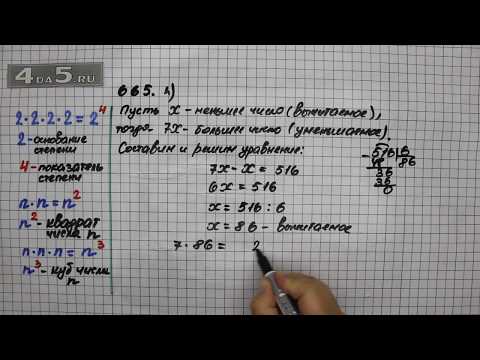 4DA5.RU
2·2·2·2=2⁴
2-основание
степени
4-показатель
степени
n·n=n²
n²-квадрат
числа n
n·n·n=n³
n³-куб числа
n
665. г)
Пусть x-меньшее число (вычитаемое),
тогда 7x-большее число (уменьшаемое).
Составим и решим уравнение:
7x-x=516
6x=516
x=516:6
x=86-вычитаемое
7·86= 2
-516 6
48 86
36
36
0